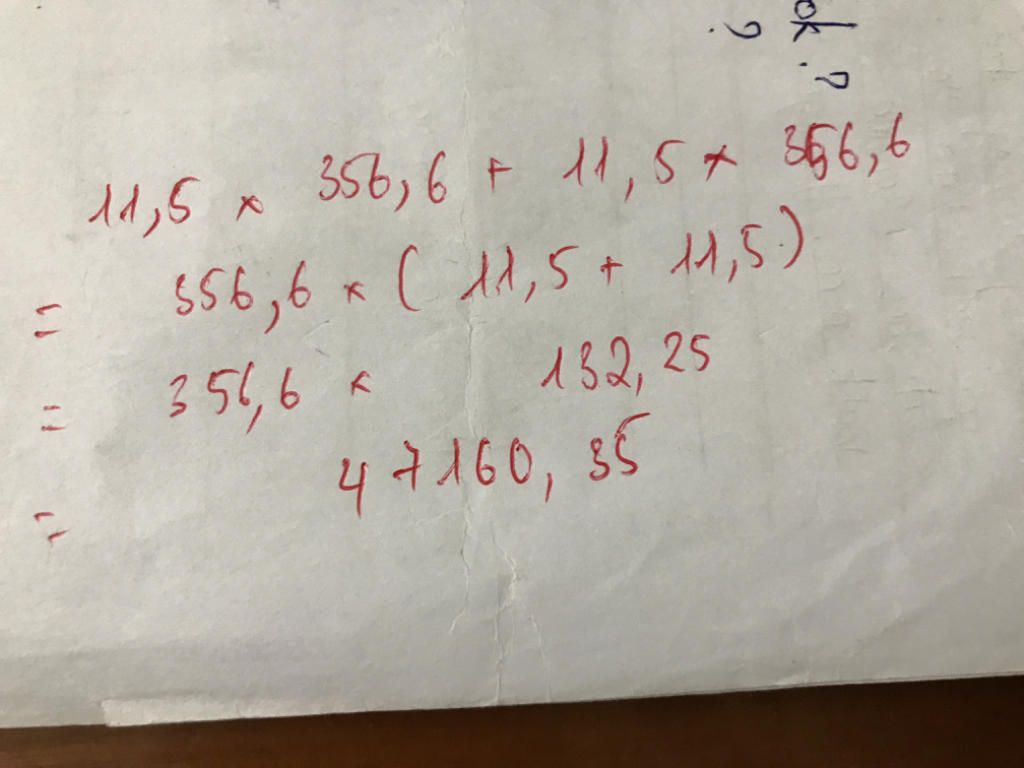 ok.?
.?
11,5 × 356,6 + 11,5 × 356,6
= 356,6 × (11,5 + 11,5)
= 356,6 × 132,25
= 47160,35